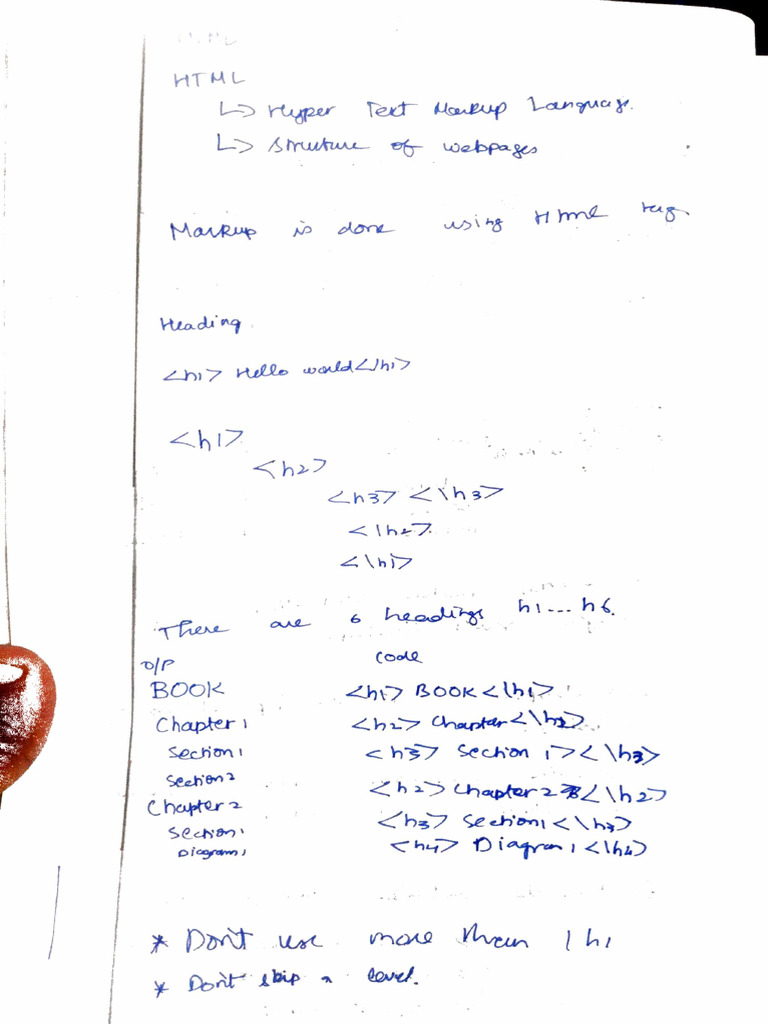 HTML
HTML
↳ Hyper Text Markup Language
↳ Struture of webpages
Markup is done using HTML tag.
Heading
<h1> Hello world<\h1>
<h1>
<h2>
<h3> <\h3>
<\h2>
<\h1>
There are 6 headings h1...h6.
O/P code
BOOK <h1> BOOK <\h1>
Chapter 1 <h2> Chapter <\h2>
Section 1 <h3> Section 1><\h3>
Section 2
<h2> Chapter 2 <\h2>
Chapter 2
<h3> Section 1 <\h3>
Section 1
<h4> Diagram 1 <\h4>
Diagram 1
* Don't use more than 1 h1
* Don't skip a level.